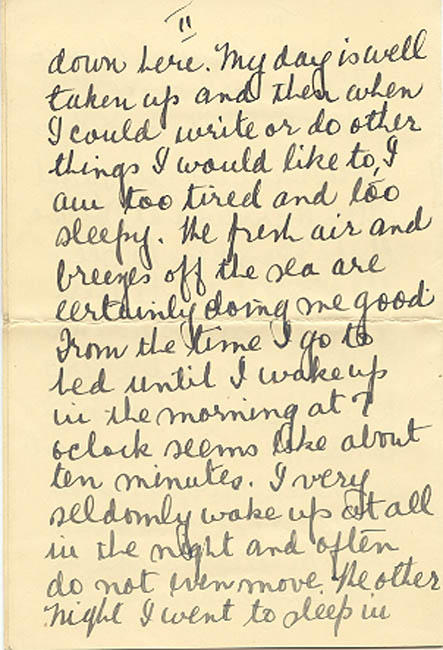 11
down here. My day is well
taken up and then when
I could write or do other
things I would like to, I
am too tired and too
sleepy. The fresh air and
breezes off the sea are
certainly doing me good.
From the time I go to
bed until I wake up
in the morning at 7
oclock seems like about
ten minutes. I very
seldomly wake up at all
in the night and often
do not even move. The other
night I went to sleep in